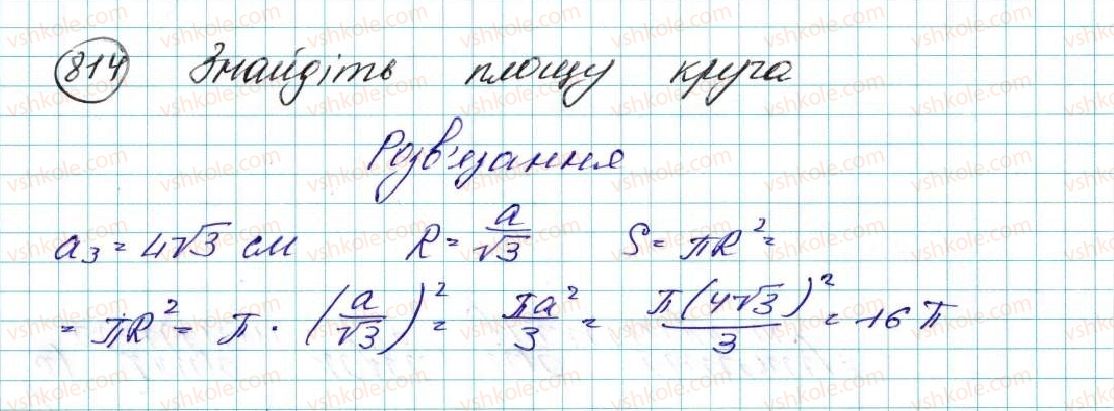 814 Знайдіть площу круга
Розв'язання
a₃ = 4√3 см R = a/√3 S = πR² =
= πR² = π · (a/√3)² = πa²/3 = π(4√3)²/3 = 16π